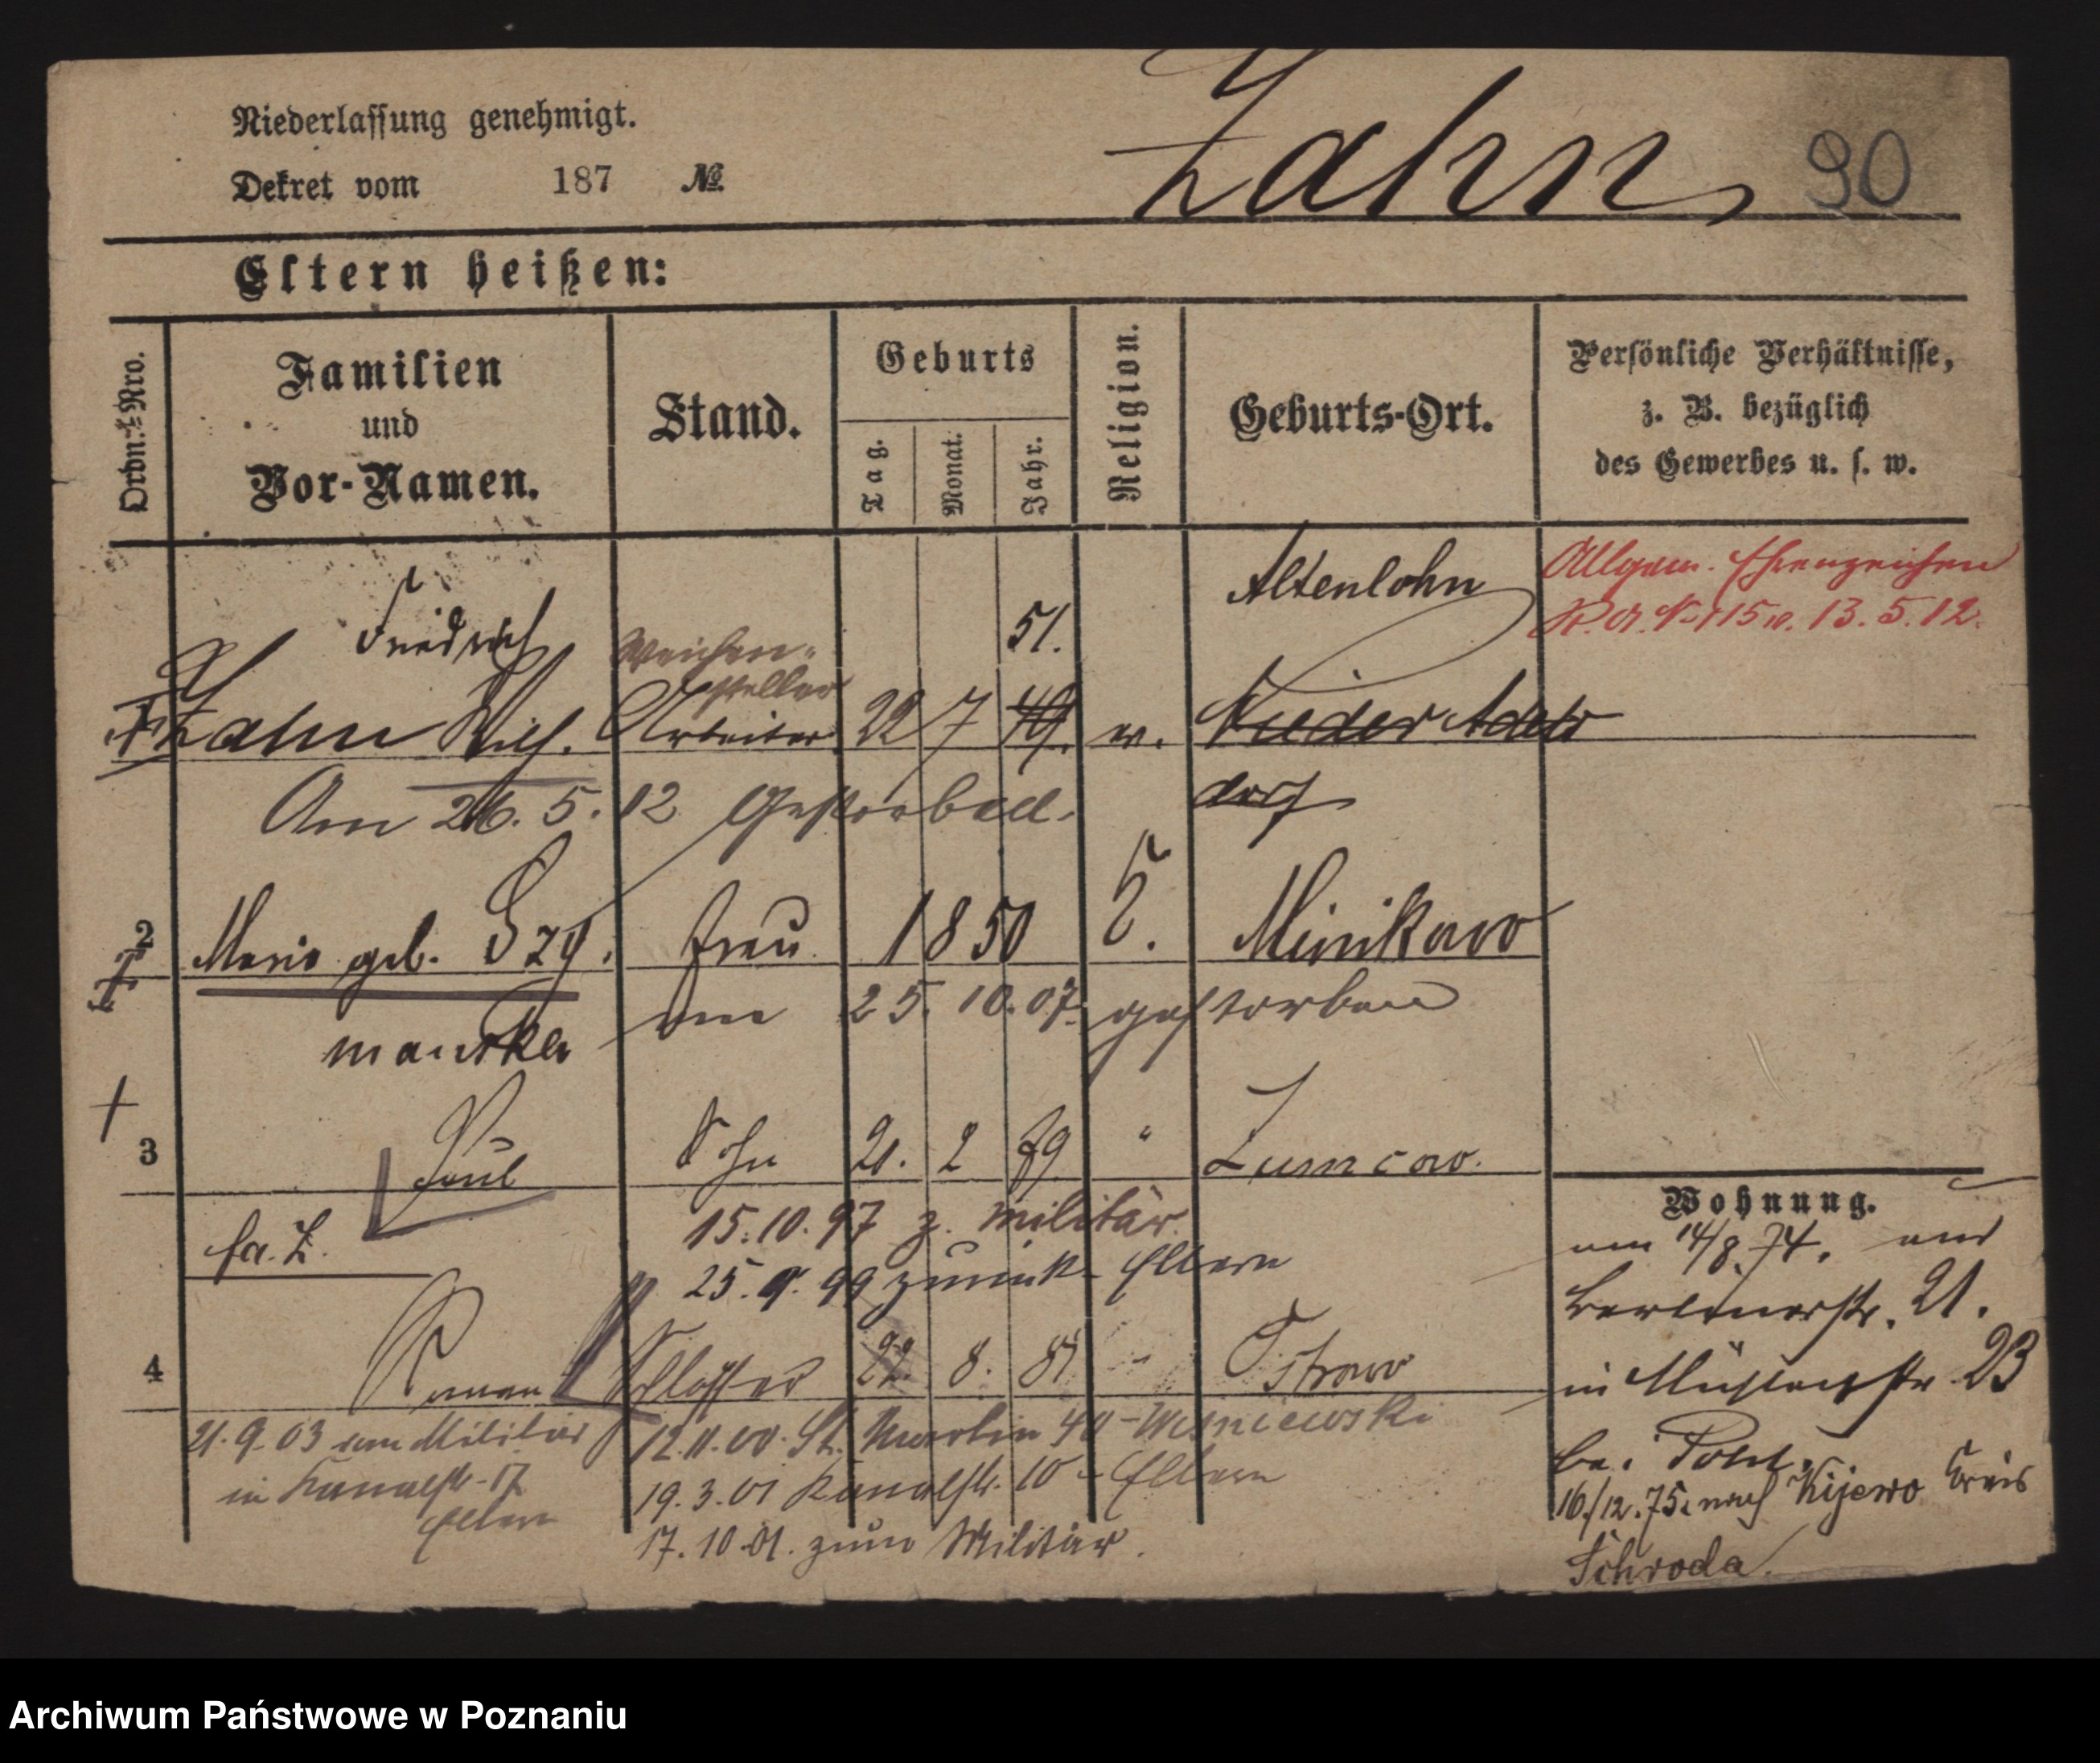 Niederlassung genehmigt.
Zahn 90
Dekret vom 187 №.
Eltern heißen:
Ordn.-Nro.
Familien
und
Vor-Namen.
Stand.
Geburts
Tag.
Monat.
Jahr.
Religion.
Geburts-Ort.
Persönliche Verhältnisse,
z. B. bezüglich
des Gewerbes u. s. w.
Friedrich
Weichen-
steller
51.
Altenlohn
Allgem. Ehrenzeichen
13. 5. 12.
Zahn Wilh. Arbeiter 22 7 49. ev. Nieder Adels
dorf
Am 26. 5. 12 Gestorben.
2 Marie geb. Szy. Frau 1850 Minikowo
manska
am 25. 10. 07. gestorben
3 Paul Sohn 21. 2 79 " Zumcow.
fa. Z.
15. 10. 97 z. Militär.
25. 9. 99 zurück Eltern
4 Roman Schlosser 22. 8. 81 " Ostrow
21. 9. 03 vom Militär
in Kanalstr. 17
Eltern
12. 11. 00. St. Martin 40 - Wisniewski
19. 3. 01 Kanalstr. 10 - Eltern
17. 10. 01. zum Militär.
Wohnung.
am 14/8. 74. aus
Berlinerstr. 21.
in Mühlenstr 23
bei
16./12. 75. nach Kijewo Kreis
Schroda.